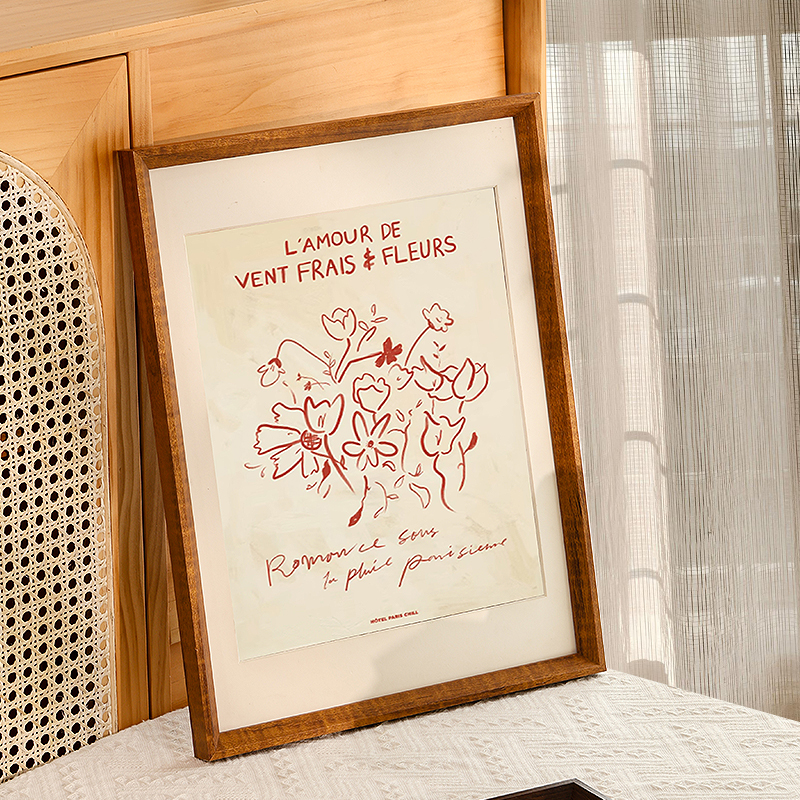 L'AMOUR DE
VENT FRAIS & FLEURS
Romance sous
la pluie parisienne
HÔTEL PARIS CHILL